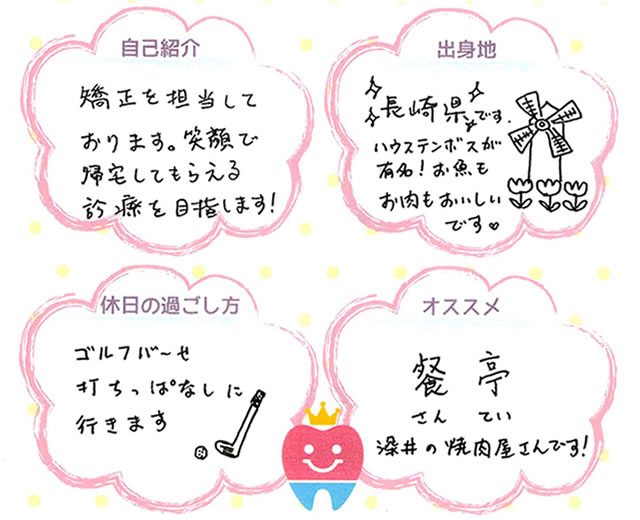 自己紹介
矯正を担当して
おります。笑顔で
帰宅してもらえる
診療を目指します!
出身地
長崎県です.
ハウステンボスが
有名!お魚も
お肉もおいしい
です♥
休日の過ごし方
ゴルフバーや
打ちっぱなしに
行きます
オススメ
餐亭
さんてい
深井の焼肉屋さんです!